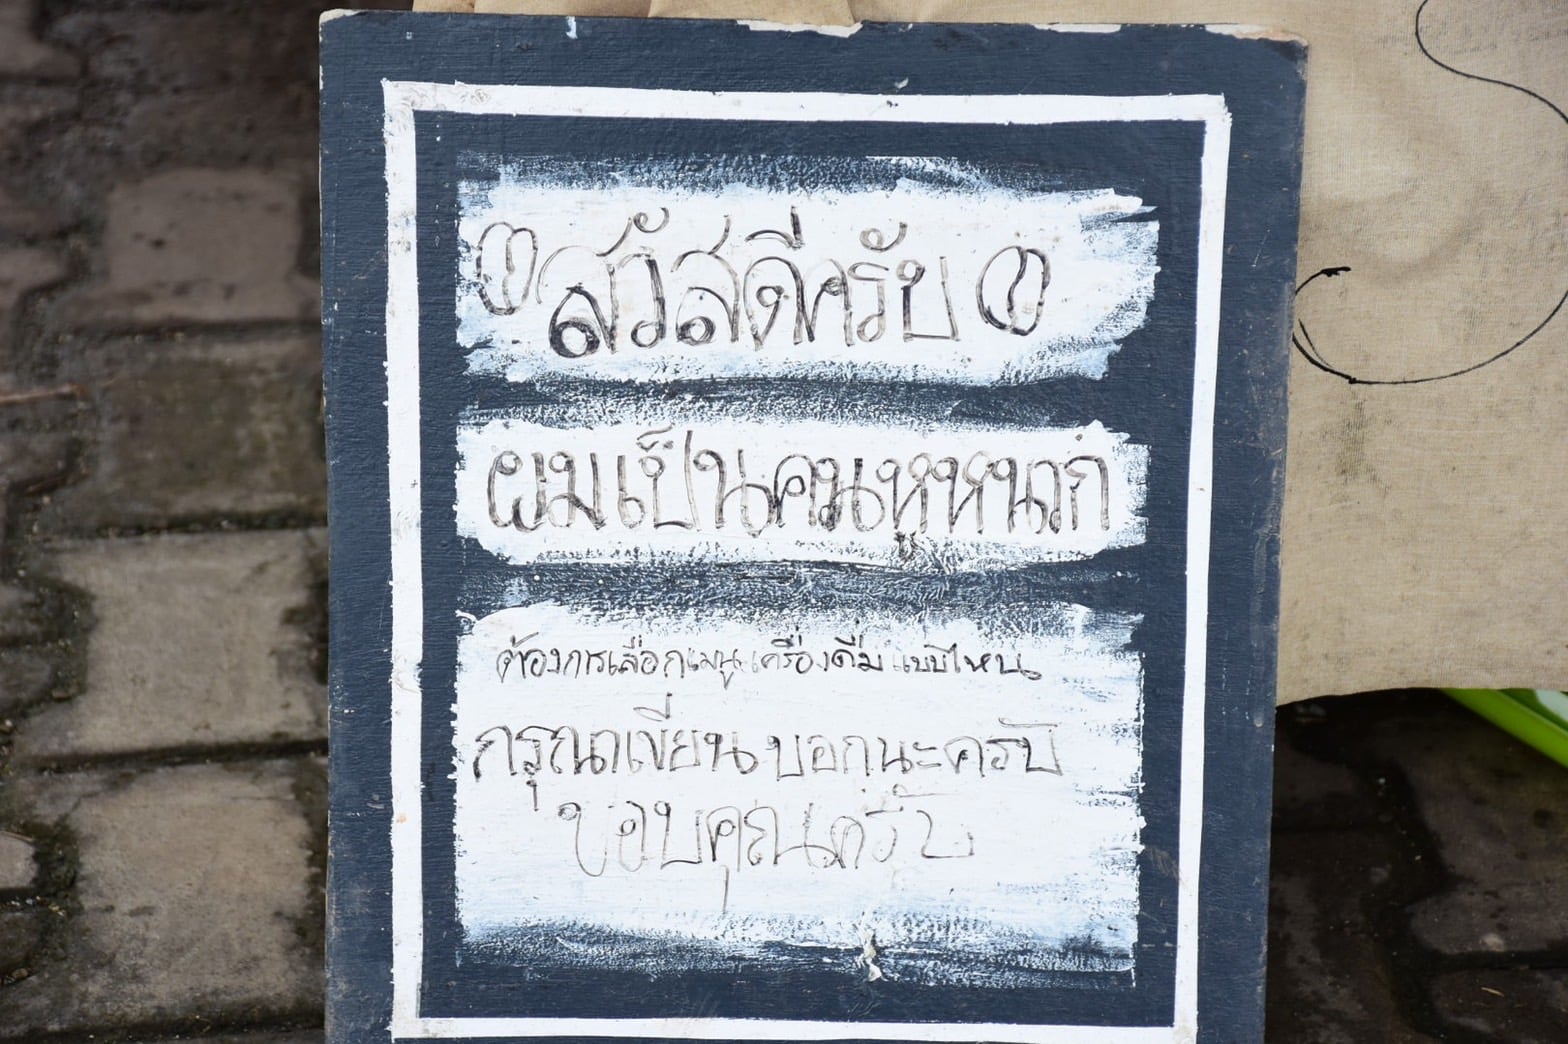 สวัสดีครับ
ผมเป็นคนหูหนวก
ต้องการเลือกเมนูเครื่องดื่มแบบไหน
กรุณาเขียนบอกนะครับ
ขอบคุณครับ